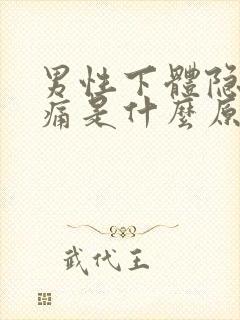 男性下體隐
痛是什麼原
武代王